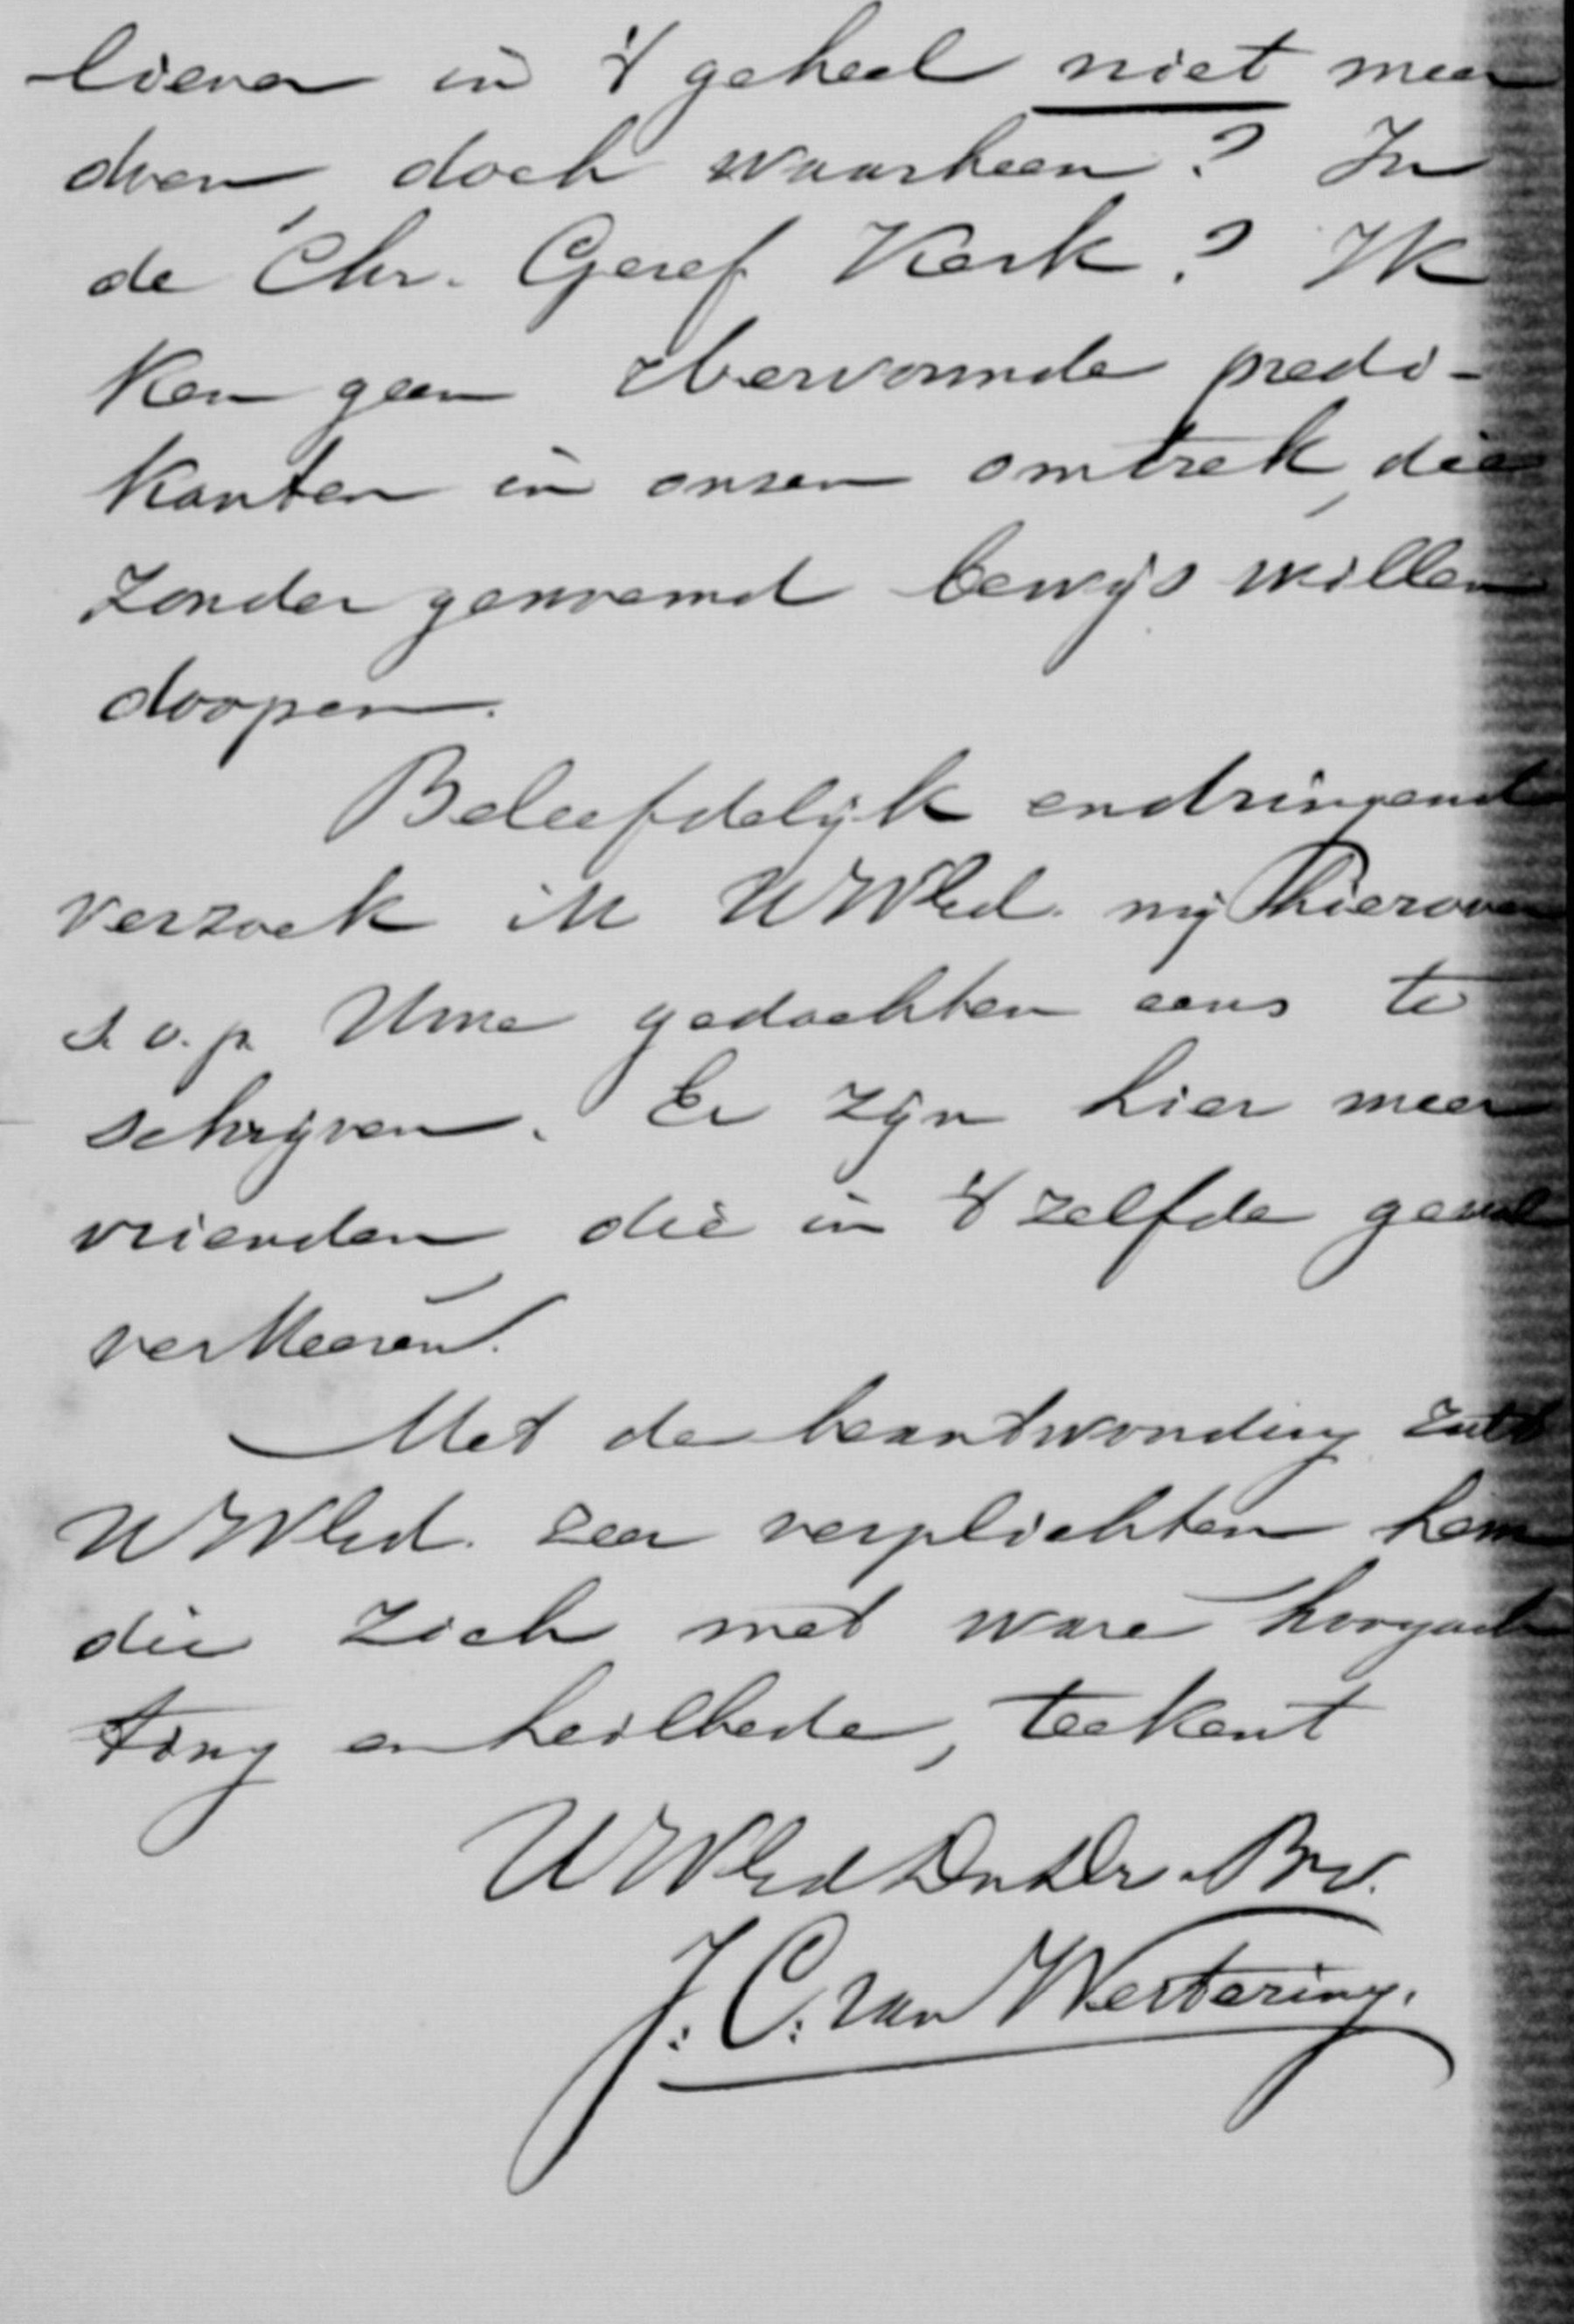 liever in 't geheel niet meer
doen, doch waarheen? In
de Chr. Geref. Kerk? Ik
ken geen Hervormde predi-
kanten in onzen omtrek, die
zonder genoemd bewijs willen
doopen.
Beleefdelijk en dringend
verzoek ik UWEd. mij hierover
s.v.p. Uwe gedachten eens te
schrijven. Er zijn hier meer
vrienden, die in 't zelfde geval
verkeeren.
Met de beantwoording zult
UWEd. zeer verplichten hem
die zich met ware hoogach
ting en heilbede, teekent
UWEd Dw Dr. Br.
J. C. van Westering.